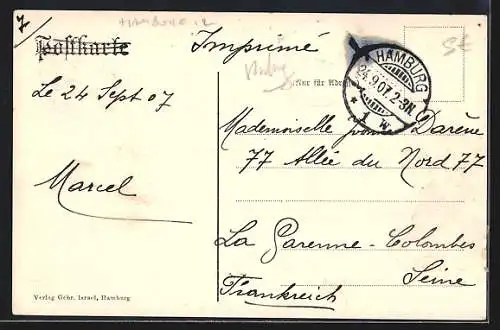 7
Postkarte
Imprimé
Le 24 Sept 07
Marcel
Nur für Adresse
HAMBURG
24.9.07.2-3N.
* 1 w. *
Mademoiselle Darène
77 Allée du Nord 77
La Garenne-Colombes
Seine
Frankreich
Verlag Gebr. Israel, Hamburg